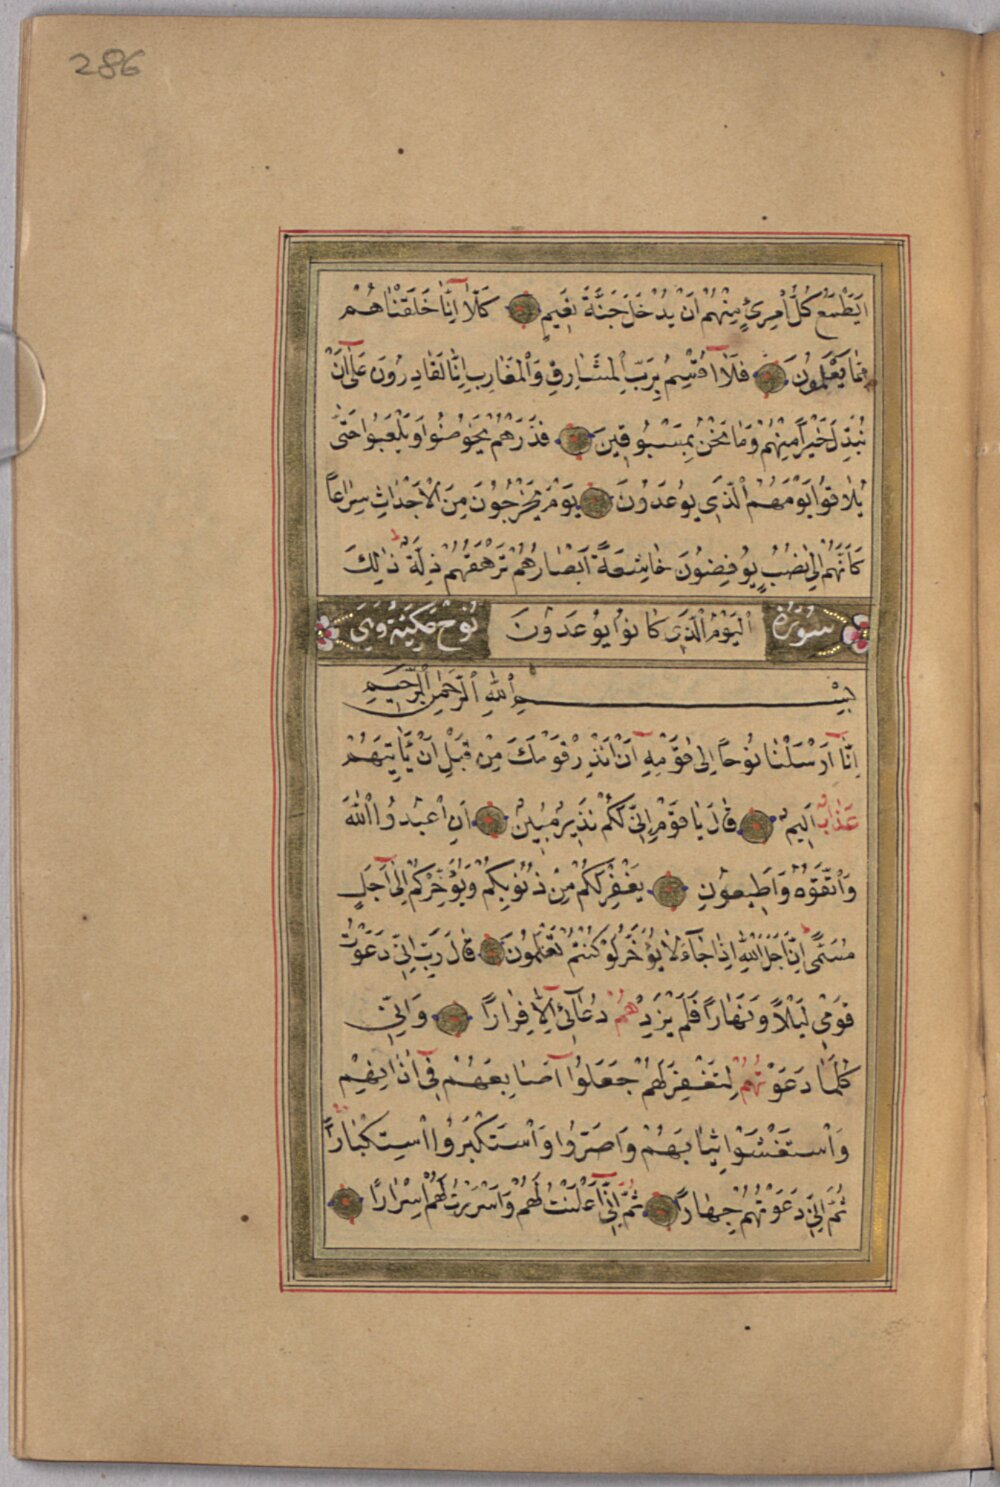 286
اَيَطْمَعُ كُلُّ امْرِئٍ مِنْهُمْ اَنْ يُدْخَلَ جَنَّةَ نَعِيمٍ كَلَّا اِنَّا خَلَقْنَاهُمْ
مِمَّا يَعْلَمُونَ فَلَا اُقْسِمُ بِرَبِّ الْمَشَارِقِ وَالْمَغَارِبِ اِنَّا لَقَادِرُونَ عَلٰى اَنْ
نُبَدِّلَ خَيْرًا مِنْهُمْ وَمَا نَحْنُ بِمَسْبُوقِينَ فَذَرْهُمْ يَخُوضُوا وَيَلْعَبُوا حَتّٰى
يُلَاقُوا يَوْمَهُمُ الَّذِي يُوعَدُونَ يَوْمَ يَخْرُجُونَ مِنَ الْاَجْدَاثِ سِرَاعًا
كَاَنَّهُمْ اِلٰى نُصُبٍ يُوفِضُونَ خَاشِعَةً اَبْصَارُهُمْ تَرْهَقُهُمْ ذِلَّةٌ ذٰلِكَ
سُورَةُ الْيَوْمُ الَّذِي كَانُوا يُوعَدُونَ نُوحٍ مَكِّيَّةٌ وَهِيَ
بِسْمِ اللهِ الرَّحْمٰنِ الرَّحِيمِ
اِنَّا اَرْسَلْنَا نُوحًا اِلٰى قَوْمِهِ اَنْ اَنْذِرْ قَوْمَكَ مِنْ قَبْلِ اَنْ يَاْتِيَهُمْ
عَذَابٌ اَلِيمٌ قَالَ يَا قَوْمِ اِنِّي لَكُمْ نَذِيرٌ مُبِينٌ اَنِ اعْبُدُوا اللهَ
وَاتَّقُوهُ وَاَطِيعُونِ يَغْفِرْ لَكُمْ مِنْ ذُنُوبِكُمْ وَيُؤَخِّرْكُمْ اِلٰى اَجَلٍ
مُسَمًّى اِنَّ اَجَلَ اللهِ اِذَا جَاءَ لَا يُؤَخَّرُ لَوْ كُنْتُمْ تَعْلَمُونَ قَالَ رَبِّ اِنِّي دَعَوْتُ
قَوْمِي لَيْلًا وَنَهَارًا فَلَمْ يَزِدْهُمْ دُعَائِي اِلَّا فِرَارًا وَاِنِّي
كُلَّمَا دَعَوْتُهُمْ لِتَغْفِرَ لَهُمْ جَعَلُوا اَصَابِعَهُمْ فِي اٰذَانِهِمْ
وَاسْتَغْشَوْا ثِيَابَهُمْ وَاَصَرُّوا وَاسْتَكْبَرُوا اسْتِكْبَارًا
ثُمَّ اِنِّي دَعَوْتُهُمْ جِهَارًا ثُمَّ اِنِّي اَعْلَنْتُ لَهُمْ وَاَسْرَرْتُ لَهُمْ اِسْرَارًا